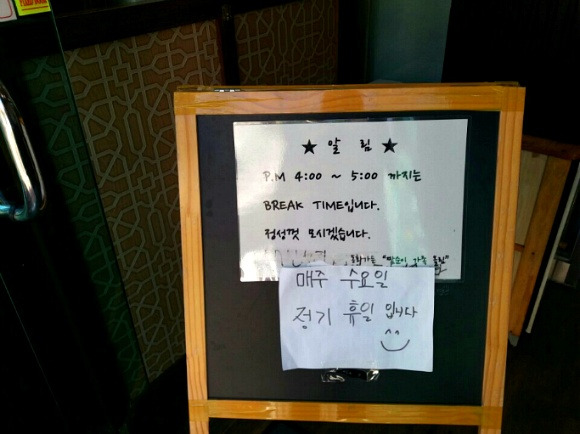 ★ 알 림 ★
P.M 4:00 ~ 5:00 까지는
BREAK TIME입니다.
정성껏 모시겠습니다.
매주 수요일
정기 휴일 입니다